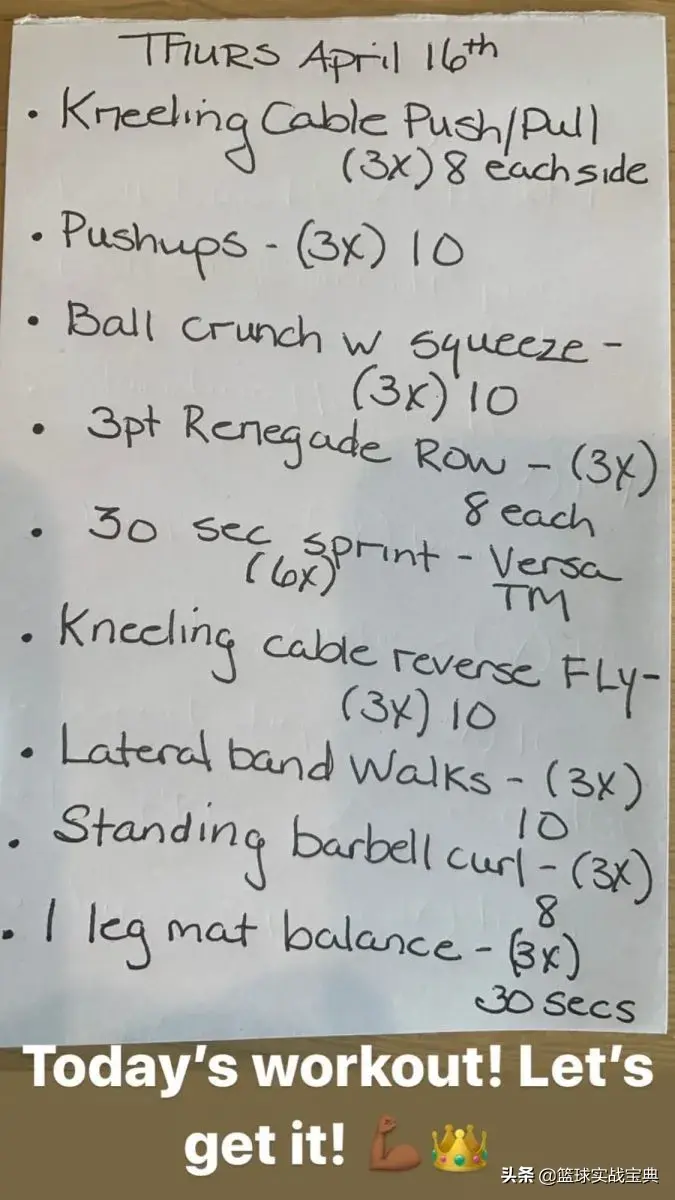 THURS April 16th
• Kneeling Cable Push/Pull
(3x) 8 each side
• Pushups - (3x) 10
• Ball crunch w squeeze -
(3x) 10
• 3pt Renegade Row - (3x)
8 each
• 30 sec sprint - Versa
(6x) TM
• Kneeling cable reverse FLy-
(3x) 10
• Lateral band Walks - (3x)
10
• Standing barbell curl - (3x)
8
• 1 leg mat balance - (3x)
30 secs
Today's workout! Let's
get it! 💪🏾👑
头条 @篮球实战宝典